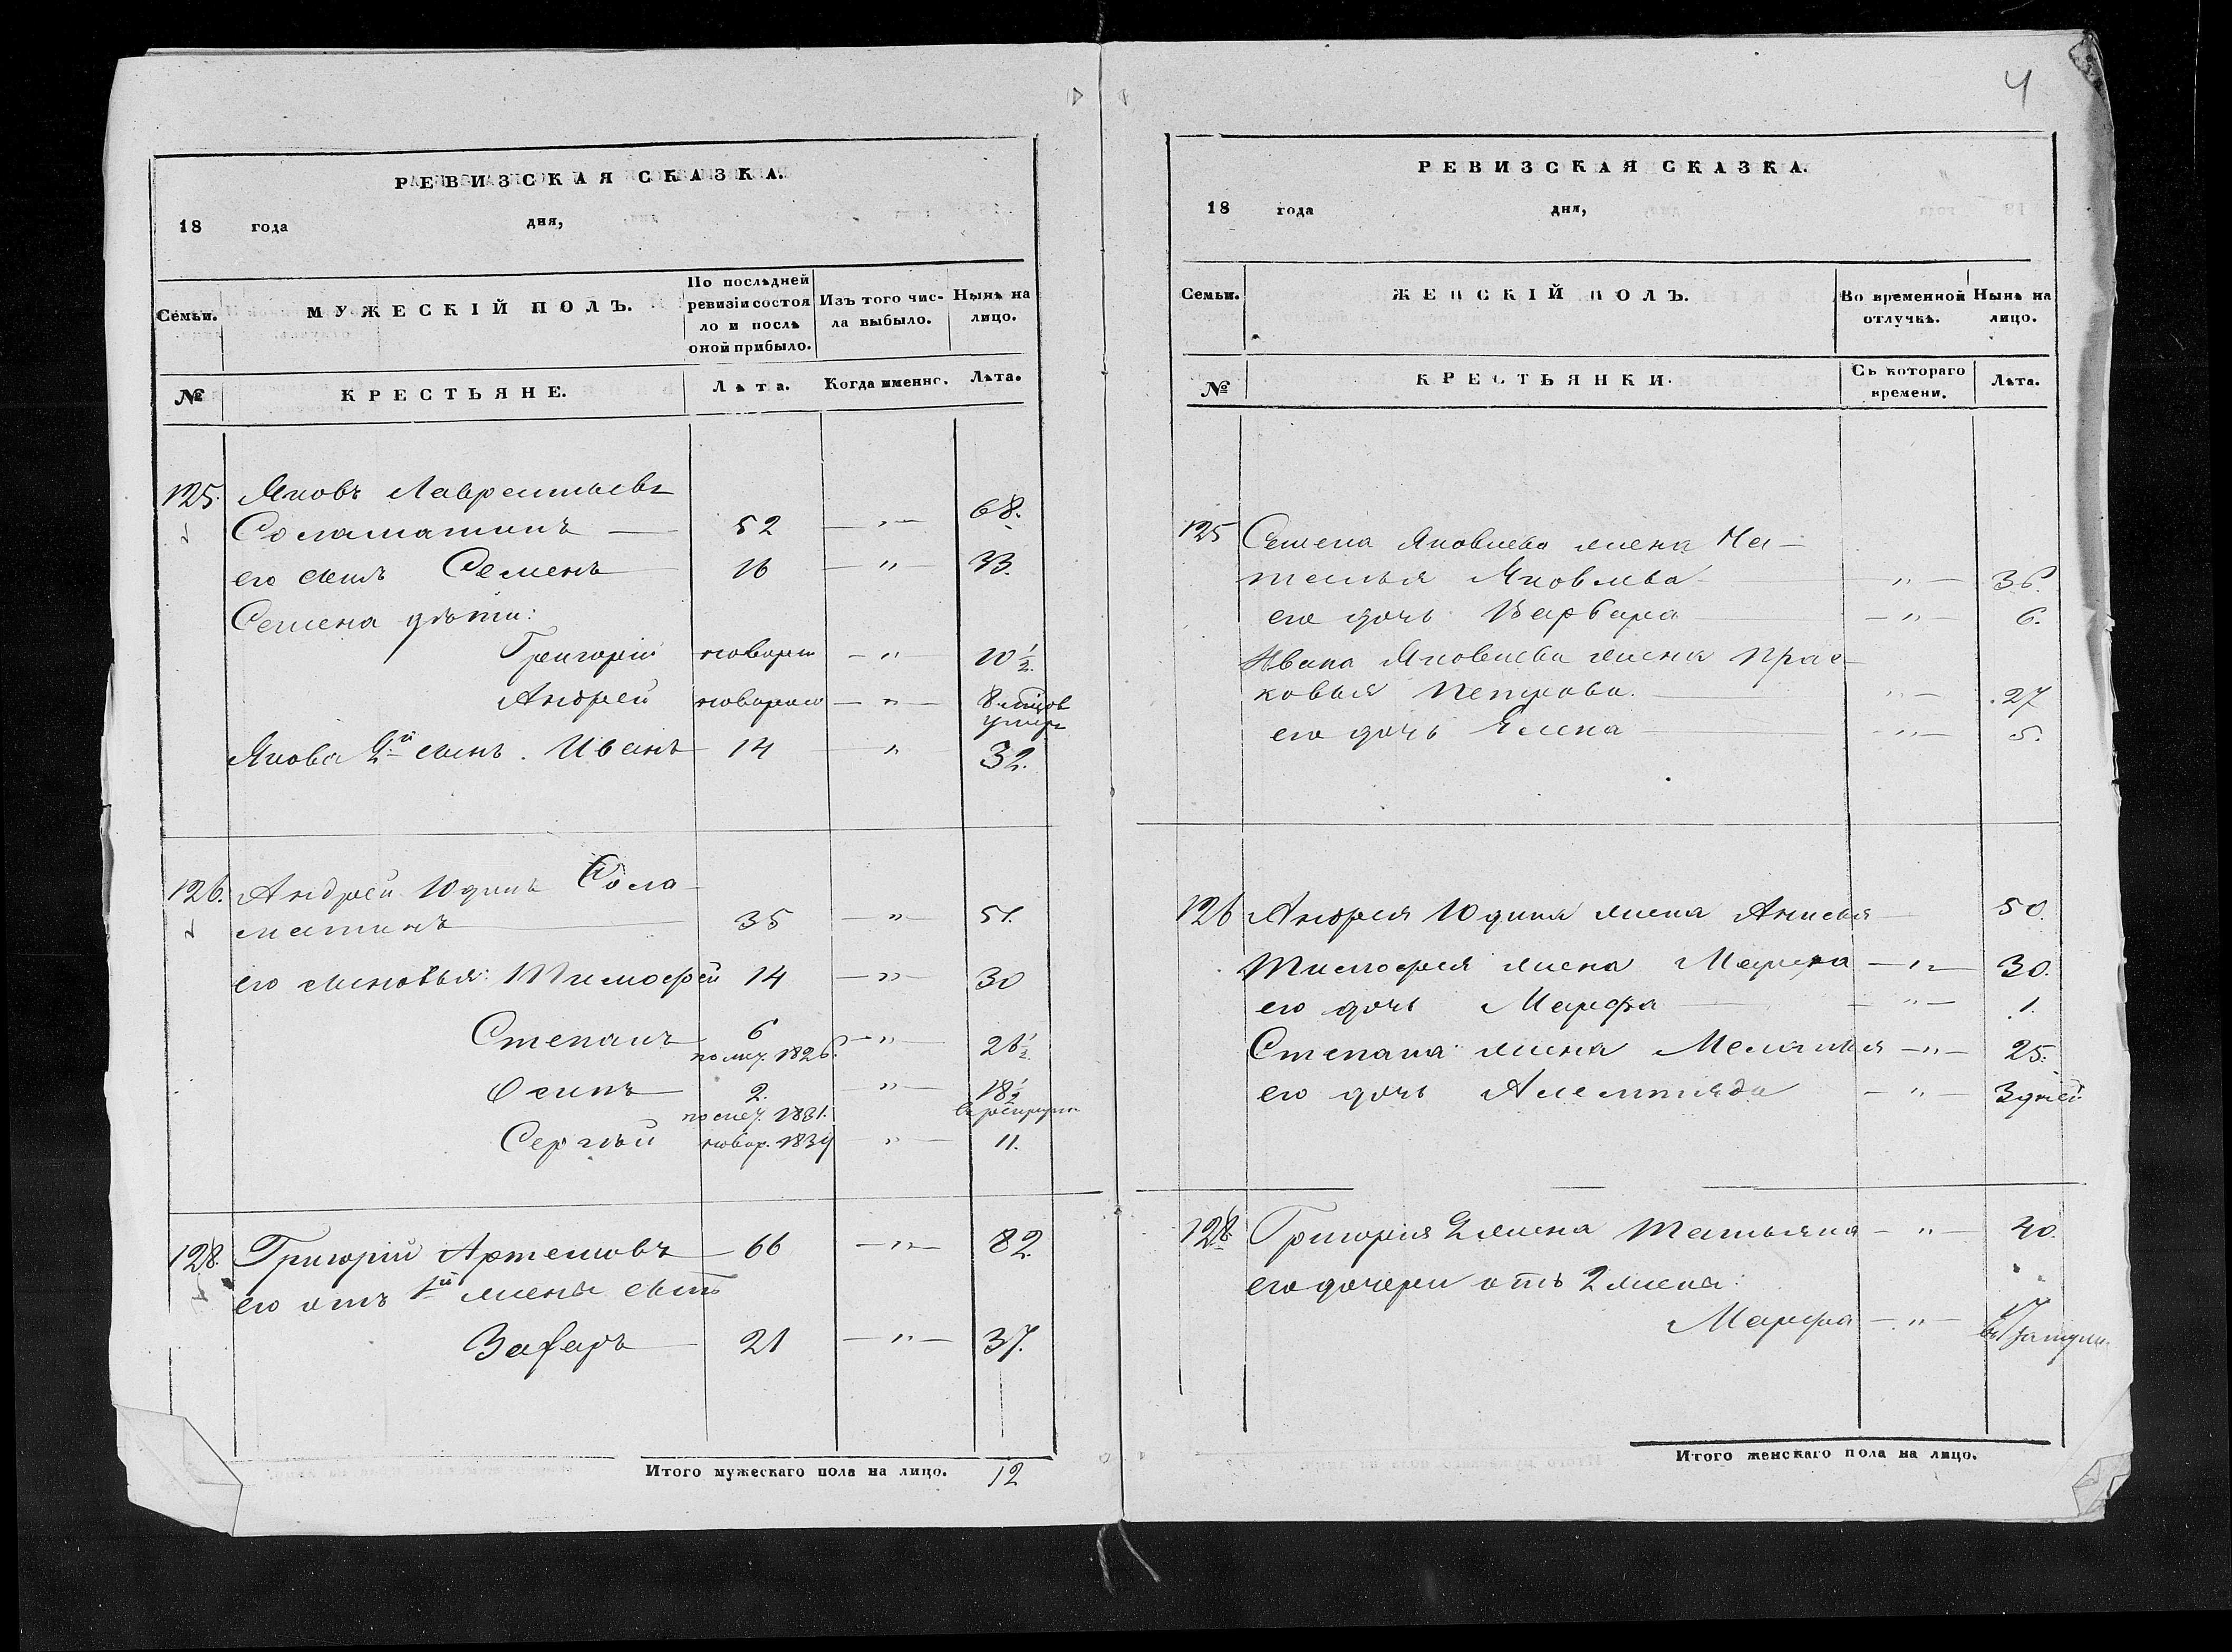 РЕВИЗСКАЯ СКАЗКА.
18 года дня,
Семьи. МУЖЕСКІЙ ПОЛЪ. По послѣдней ревизіи состоя ло и послѣ оной прибыло. Изъ того чис- ла выбыло. Нынѣ на лицо.
№ КРЕСТЬЯНЕ. Лѣта. Когда именно. Лѣта.
125. Яковъ Лаврентьевъ
Соламатинъ — 52 — " — 68.
его сынъ Семенъ 16 — " — 33.
Семена дѣти:
Григорій новорож — " — 10 1/2.
Андрей новорож — " — 8 мѣсяцов
умеръ
Якова 2й сынъ. Иванъ 14 " 32.
126. Андрей Юдинъ Сола-
матинъ 35 — " — 51.
его сыновья: Тимофей 14 — " — 30
Степанъ 6 — " — 26 1/2
1826.
Осипъ 2. " — 18 1/2
1831.
Сергѣй новор. 1839 " 11.
128. Григорій Артемовъ — 66 — " — 82.
его отъ 1й жены сынъ
Захаръ 21 — " — 37.
Итого мужескаго пола на лицо. 12
4
РЕВИЗСКАЯ СКАЗКА.
18 года дня,
Семьи. ЖЕНСКІЙ ПОЛЪ. Во временной отлучкѣ. Нынѣ на лицо.
№ КРЕСТЬЯНКИ. Съ котораго времени. Лѣта.
125 Семена Яковлева жена На-
талья Яковлева " — 36.
его дочь Варвара — " — 6.
Ивана Яковлева жена Прас-
ковья Петрова. " — 27
его дочь Елена — " — 5.
126 Андрея Юдина жена Анисья 50.
Тимофея жена Марфа — " — 30.
его дочь Марфа — " — 1.
Степана жена Меланья — " — 25.
его дочь — " — 3 дней
128. Григорія 2 жена Татьяна — " — 40.
его дочери отъ 2 жены:
Марфа — " — 17
Итого женскаго пола на лицо.